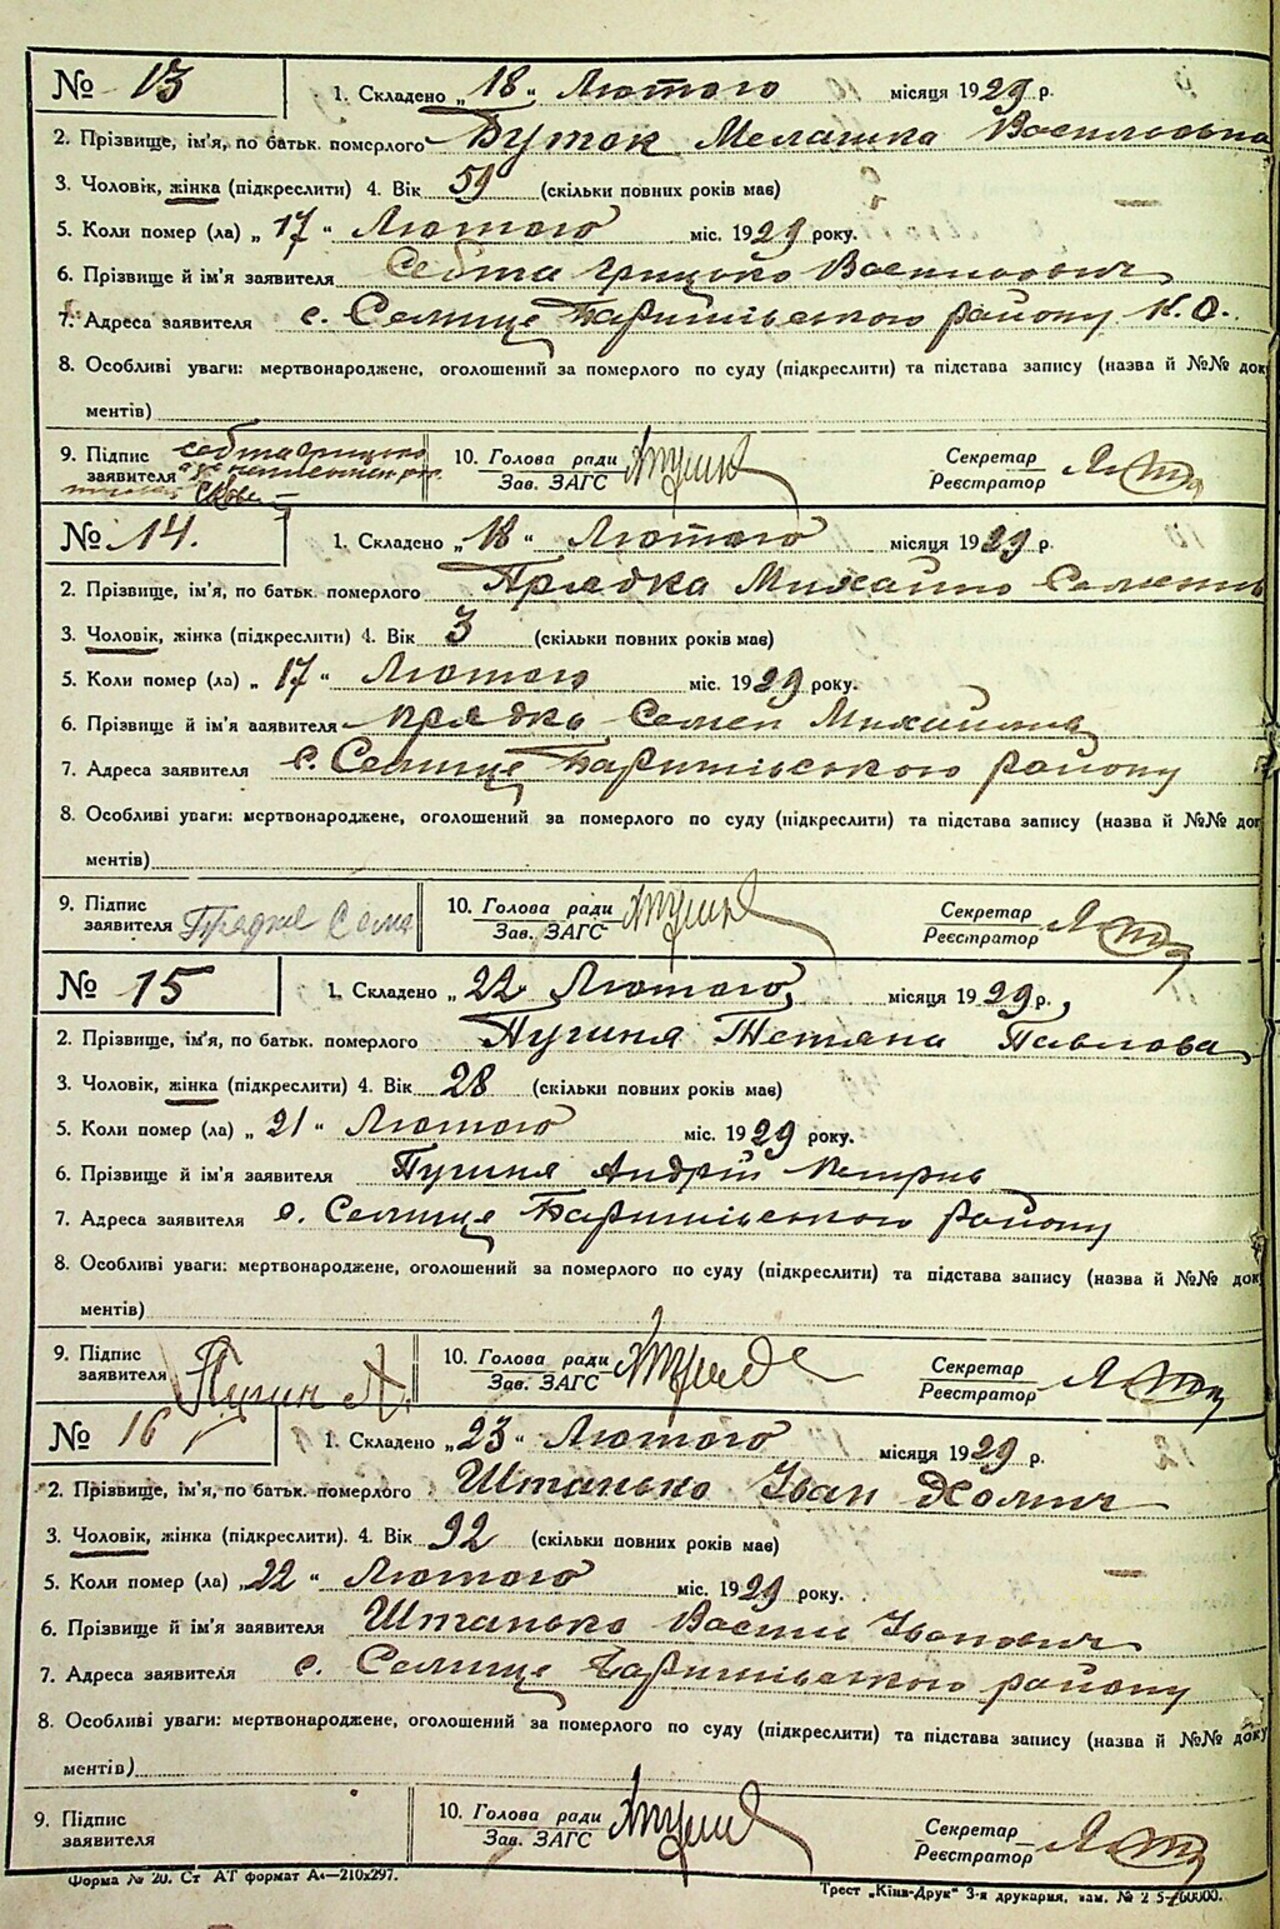 № 13
1. Складено „18“ Лютого місяця 1929 р.
2. Прізвище, ім'я, по батьк. померлого Буток Мелашка Васильовна
3. Чоловік, жінка (підкреслити) 4. Вік 59 (скільки повних років має)
5. Коли помер (ла) „17“ Лютого міс. 1929 року.
6. Прізвище й ім'я заявителя Себта Грицько Васильович
7. Адреса заявителя с. Селище Баришівського району К.О.
8. Особливі уваги: мертвонароджене, оголошений за померлого по суду (підкреслити) та підстава запису (назва й №№ док
ментів)
9. Підпис заявителя Себта Грицько
10. Голова ради
Зав. ЗАГС
Секретар
Реєстратор
№ 14.
1. Складено „18“ Лютого місяця 1929 р.
2. Прізвище, ім'я, по батьк. померлого Прядка Михайло Семенів
3. Чоловік, жінка (підкреслити) 4. Вік 3 (скільки повних років має)
5. Коли помер (ла) „17“ Лютого міс. 1929 року.
6. Прізвище й ім'я заявителя Прядко Семен Михайлив
7. Адреса заявителя с. Селище Баришівського району
8. Особливі уваги: мертвонароджене, оголошений за померлого по суду (підкреслити) та підстава запису (назва й №№ док
ментів)
9. Підпис заявителя Прядко Семе
10. Голова ради
Зав. ЗАГС
Секретар
Реєстратор
№ 15
1. Складено „22 Лютого, місяця 1929 р.,
2. Прізвище, ім'я, по батьк. померлого Пугиня Тетяна Павлова
3. Чоловік, жінка (підкреслити) 4. Вік 28 (скільки повних років має)
5. Коли помер (ла) „21“ Лютого міс. 1929 року.
6. Прізвище й ім'я заявителя Пугиня Андрій Петрив
7. Адреса заявителя с. Селище Баришівського району
8. Особливі уваги: мертвонароджене, оголошений за померлого по суду (підкреслити) та підстава запису (назва й №№ док
ментів)
9. Підпис заявителя Пугин А.
10. Голова ради
Зав. ЗАГС
Секретар
Реєстратор
№ 16
1. Складено „23“ Лютого місяця 1929 р.
2. Прізвище, ім'я, по батьк. померлого Штанько Іван Хомич
3. Чоловік, жінка (підкреслити). 4. Вік 92 (скільки повних років має)
5. Коли помер (ла) „22“ Лютого міс. 1929 року.
6. Прізвище й ім'я заявителя Штанько Василь Іванович
7. Адреса заявителя с. Селище Баришівського району
8. Особливі уваги: мертвонароджене, оголошений за померлого по суду (підкреслити) та підстава запису (назва й №№ доку
ментів)
9. Підпис заявителя
10. Голова ради
Зав. ЗАГС
Секретар
Реєстратор
Форма № 20. Ст АТ формат А4—210х297.
Трест „Київ-Друк“ 3-я друкарня, зам. №